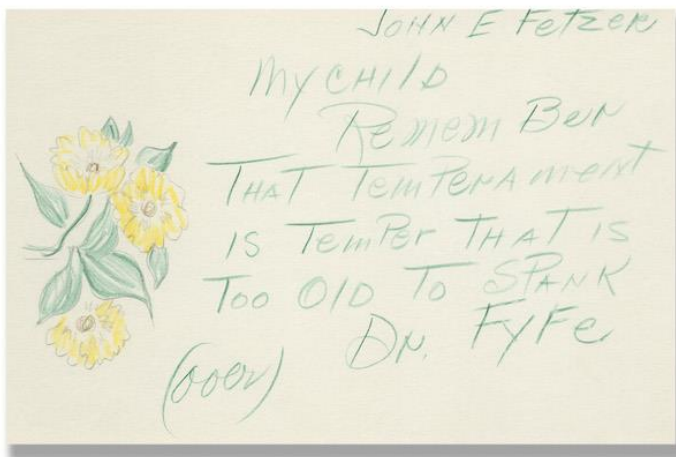 JOHN E FeTZER
MY CHILD
RemeM BeR
THAT TemPeRAmenT
IS TemPer THAT IS
Too OlD To SPANK
DR. FyFe
(over)